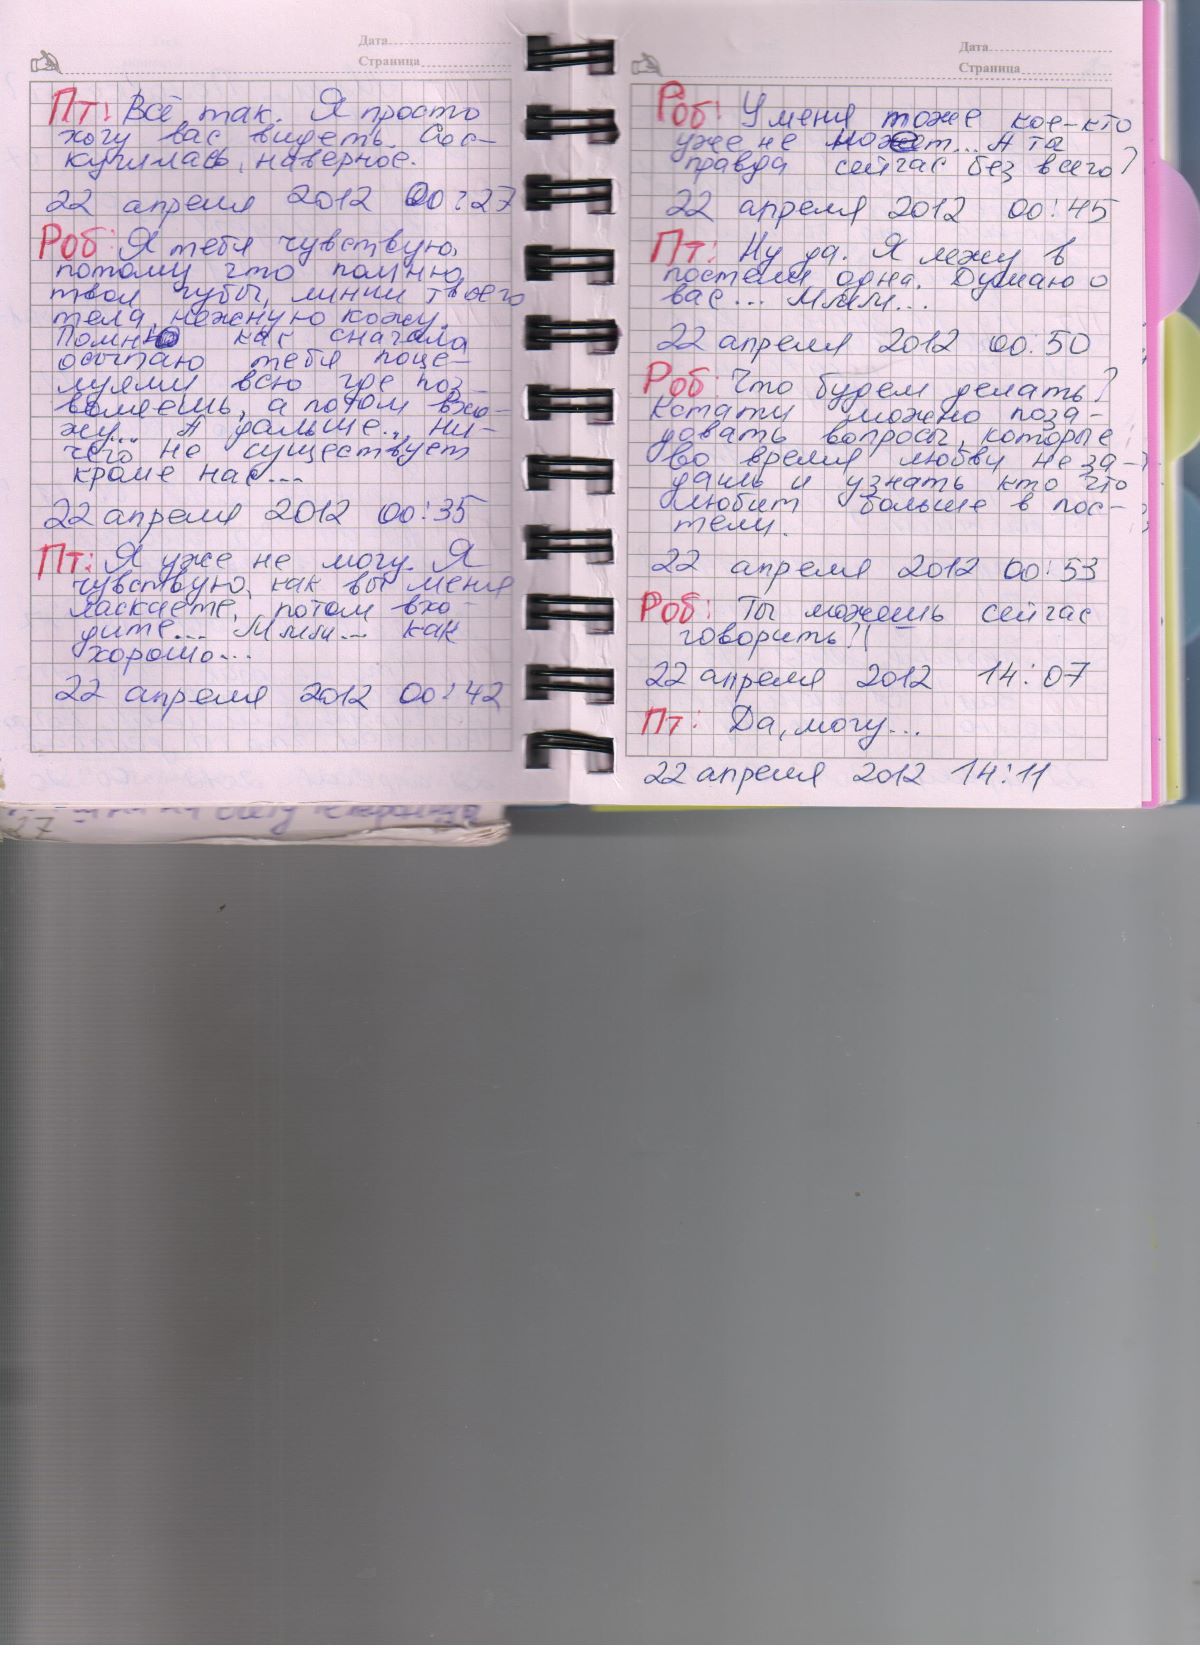 Дата
Страница
Пт: Всё так. Я просто
хочу вас видеть. Сос-
кучилась, наверное.
22 апреля 2012 00:27
Роб: Я тебя чувствую,
потому что помню
твои губы, линии твоего
тела, нежную кожу.
Помню как сначала
осыпаю тебя поце-
луями всю где поз-
воляешь, а потом вхо-
жу... А дальше... ни-
чего не существует
кроме нас...
22 апреля 2012 00:35
Пт: Я уже не могу. Я
чувствую, как вы меня
ласкаете, потом вхо-
дите... Ммм... как
хорошо...
22 апреля 2012 00:42
Дата
Страница
Роб: У меня тоже кое-кто
уже не может... А та
правда сейчас без всего?
22 апреля 2012 00:45
Пт: Ну да. Я лежу в
постели одна. Думаю о
вас... Ммм...
22 апреля 2012 00:50
Роб: Что будем делать?
Кстати можно поза-
давать вопросы, которые
во время любви не за-
дашь и узнать кто что
любит больше в пос-
тели.
22 апреля 2012 00:53
Роб: Ты можешь сейчас
говорить?!
22 апреля 2012 14:07
Пт: Да, могу...
22 апреля 2012 14:11
27